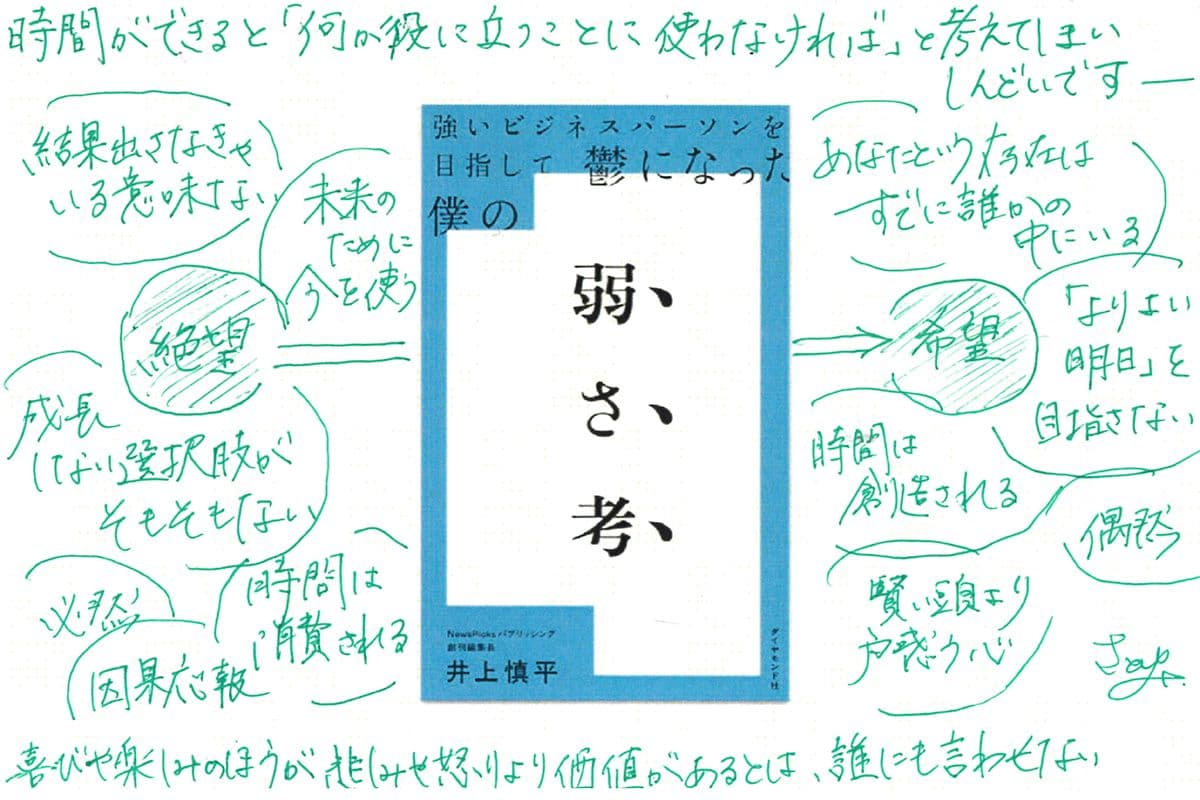 時間ができると「何か役に立つことに使わなければ」と考えてしまい
しんどいです
結果出さなきゃ
いる意味ない
未来の
ために
今を使う
絶望
成長
しない選択肢が
そもそもない
必然
因果応報
時間は
消費される
強いビジネスパーソンを
目指して 鬱になった
僕の
弱、
さ、
考、
NewsPicksパブリッシング
創刊編集長
井上慎平
ダイヤモンド社
あなたという存在は
すでに誰かの
中にいる
希望
「よりよい
明日」を
目指さない
時間は
創造される
偶然
賢い頭より
戸惑う心
喜びや楽しみのほうが悲しみや怒りより価値があるとは、誰にも言わせない